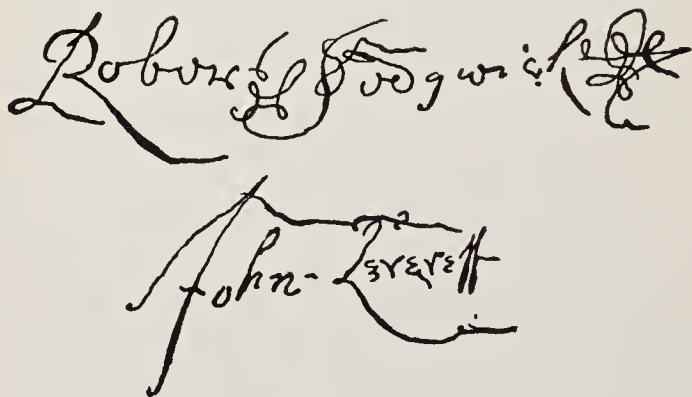 Robert Sedgwick
John Leverett